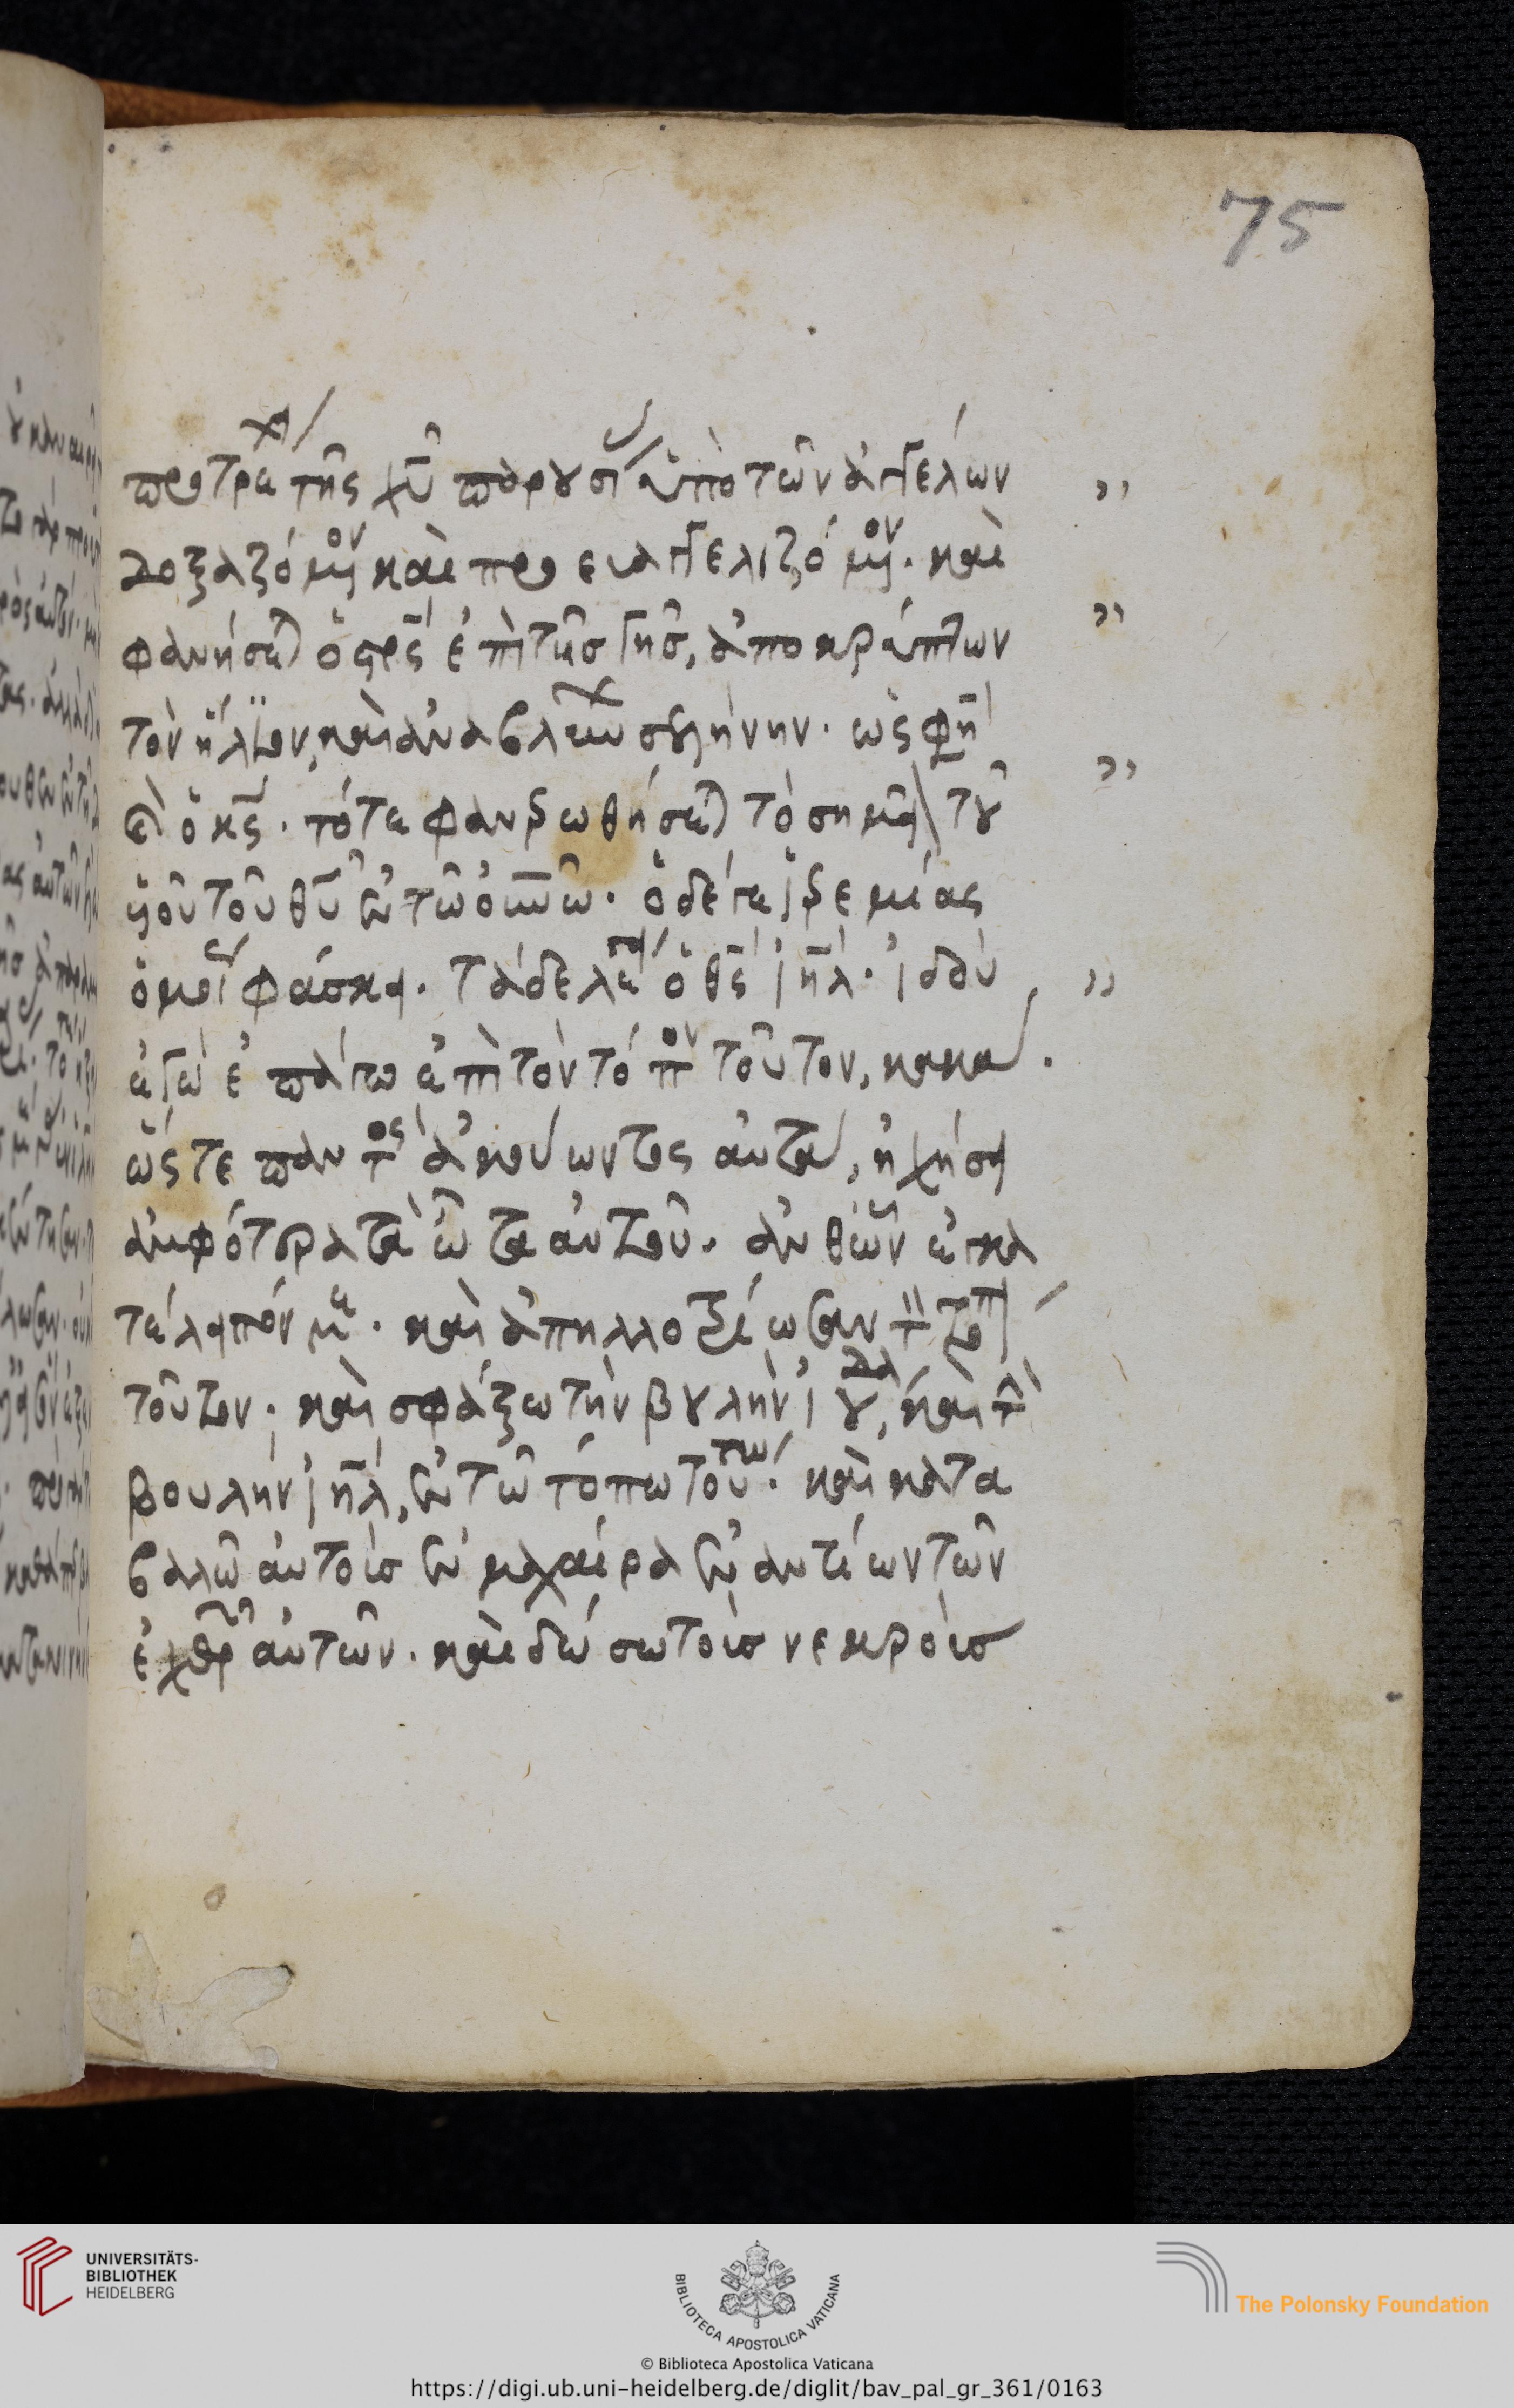 75
προτρέχ τῆς χῦ παρουσί ὑπὸ τῶν ἀγγελων
δοξαζόμενον καὶ προευαγγελιζόμενον. καὶ
φανήσεται ὁ σρς ἐπὶ τῆς γῆς, ἀποκρύπτων
τὸν ἥλιον, καὶ σελήνην. ὡς φη
ὁ κς. τότε φανερωθήσεται τὸ σημεῖον τοῦ
υἱοῦ τοῦ θυ ἐν τῶ οὐνῶ. ὁ δέ γε ἱερεμίας
ὁμοί φάσκει. τάδε λέγει ὁ θς ιηλ. ἰδοὺ
ἐγὼ ἐπάγω ἐπὶ τὸν τόπον τοῦτον, κακά.
ὥστε παντὸς ἀκούωντος αὐτά, ἠχήσει
ἀμφότερα τὰ ὦτα αὐτοῦ. ἀνθῶν ἐγκα
τέλιπόν με. καὶ ἀπηλλοξίωσαν τὸν τόπ
τοῦτον. καὶ σφάξω τὴν βουλὴν ιουδα, καὶ τὴν
βουλὴν ιηλ, ἐν τῶ τόπω τούτω. καὶ κατα
βαλῶ αὐτοὺς ἐν μαχαίρα ἐναντίων τῶν
ἐχθρῶν αὐτῶν. καὶ δώσω τοὺς νεκροὺς
UNIVERSITÄTS-
BIBLIOTHEK
HEIDELBERG
BIBLIOTECA APOSTOLICA VATICANA
The Polonsky Foundation
© Biblioteca Apostolica Vaticana
https://digi.ub.uni-heidelberg.de/diglit/bav_pal_gr_361/0163